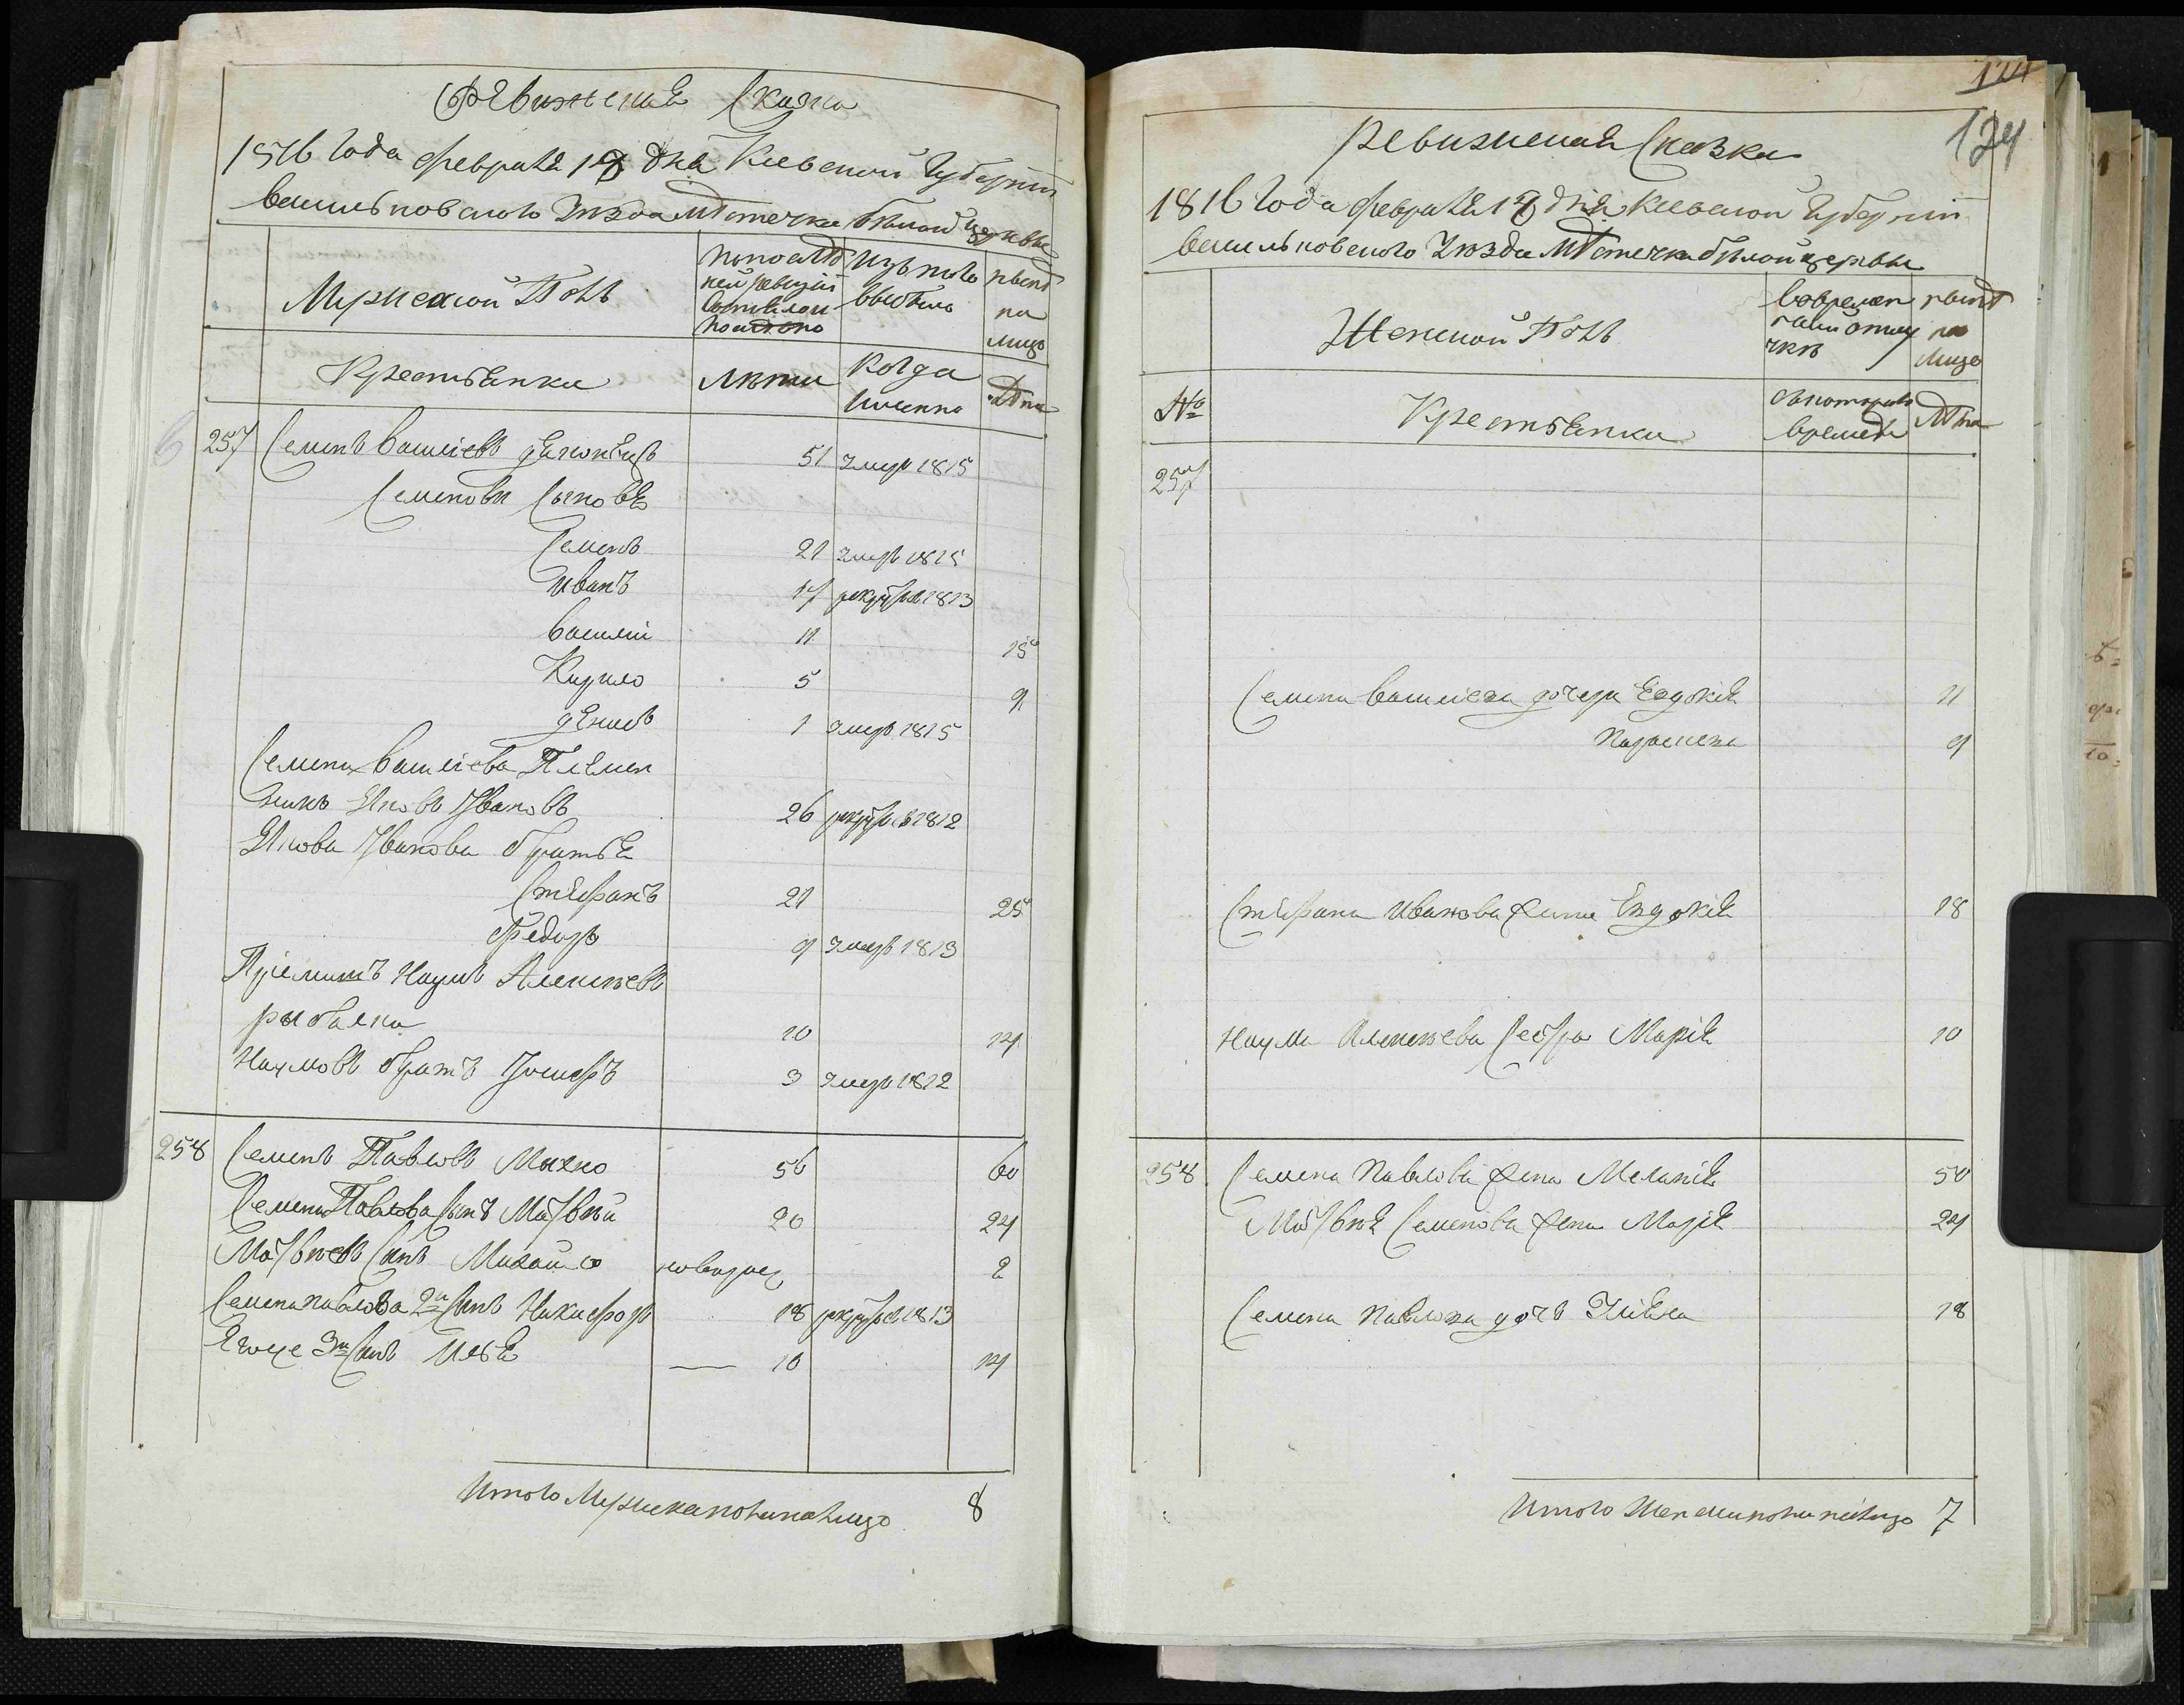 Ревизская Сказка
1816 Года Февраля 18 дня Киевской Губерніи
васильковского Уѣзда мѣстечка бѣлой церквы
Мужеской Полъ
По последней ревизіи состояло
Изъ того выбыло
ныне на лицо
Крестьянки
Лѣты
Когда именно
Лѣта
257 Семенъ василіевъ 51 умер 1815
Семеновы Сыновья
Семенъ 21 умеръ 1815
Иванъ 17 рекрутъ 1813
василій 11 15
Кирило 5 9
денисъ 1 умер 1815
Семена василіева Племен
никъ Яковъ Ивановъ 26 рекрутъ в 1812
Якова Иванова братья
Стефанъ 21 25
Федоръ 9 умеръ 1813
Пріемышъ Наумъ Алексѣевъ
рыбалка 10 14
Наумовъ братъ Іосифъ 3 умер 1812
258 Семенъ Павловъ Махно 56 60
Семена Павлова Сынъ Матвѣй 20 24
Матвѣевъ Сынъ Михайло новорожд 2
Семена павлова 2й Сынъ Никифоръ 18 рекрутъ в 1813
Егоже 3й Сынъ Илья 10 14
Итого Мужеска пола налицо 8
124
124
Ревизская Сказка
1816 Года Февраля 18 дня Киевской Губерніи
васильковского Уѣзда Мѣстечка бѣлой церквы
Женской Полъ
Во временной отлучкѣ
ныне на лицо
№
Крестьянки
Съ котораго времени
Лѣта
257
Семена василіева дочери Евдокія 11
Параскева 9
Стефана Иванова жена Евдокія 18
Наума Алексѣева Сестра Марія 10
258 Семена Павлова жена Меланія 50
Матвѣя Семенова жена Марія 24
Семена Павлова дочь 18
Итого Женска пола налицо 7